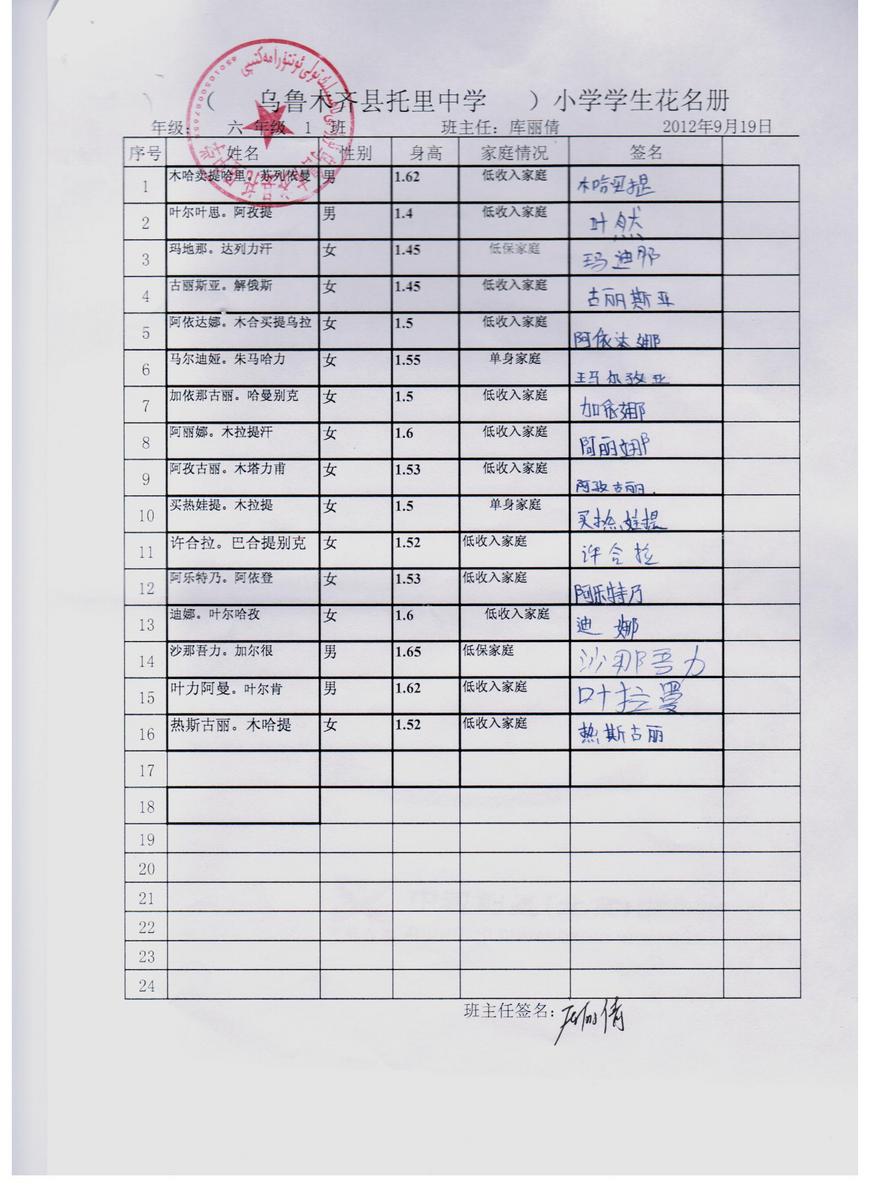 （ 乌鲁木齐县托里中学 ）小学学生花名册
年级： 六 年级 1 班 班主任：库丽倩 2012年9月19日
序号 姓名 性别 身高 家庭情况 签名
1 木哈卖提哈里。苏列依曼 男 1.62 低收入家庭 木哈买提
2 叶尔叶思。阿孜提 男 1.4 低收入家庭 叶
3 玛地那。达列力汗 女 1.45 低保家庭 玛迪那
4 古丽斯亚。解俄斯 女 1.45 低收入家庭 古丽斯亚
5 阿依达娜。木合买提乌拉 女 1.5 低收入家庭 阿依达娜
6 马尔迪娅。朱马哈力 女 1.55 单身家庭
7 加依那古丽。哈曼别克 女 1.5 低收入家庭 加依娜
8 阿丽娜。木拉提汗 女 1.6 低收入家庭 阿丽娜
9 阿孜古丽。木塔力甫 女 1.53 低收入家庭 阿孜古丽.
10 买热娃提。木拉提 女 1.5 单身家庭 买热娃提
11 许合拉。巴合提别克 女 1.52 低收入家庭 许合拉
12 阿乐特乃。阿依登 女 1.53 低收入家庭 阿乐特乃
13 迪娜。叶尔哈孜 女 1.6 低收入家庭 迪娜
14 沙那吾力。加尔很 男 1.65 低保家庭 沙那吾力
15 叶力阿曼。叶尔肯 男 1.62 低收入家庭 叶拉曼
16 热斯古丽。木哈提 女 1.52 低收入家庭 热斯古丽
17
18
19
20
21
22
23
24
班主任签名：库丽倩